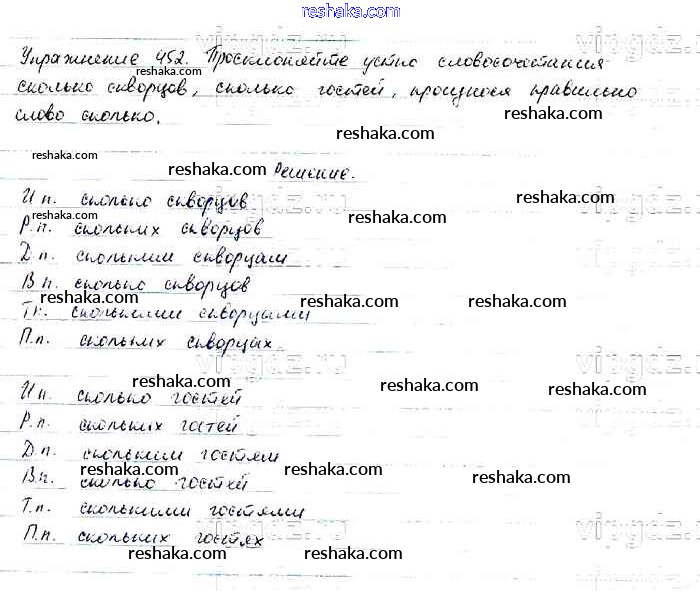 reshaka.com
Упражнение 452. Просклоняйте устно словосочетания
reshaka.com
сколько скворцов, сколько гостей, произнося правильно
reshaka.com
слово сколько.
reshaka.com
reshaka.com
reshaka.com Решение.
vipgdz.ru
И п. сколько скворцов
reshaka.com
reshaka.com
Р.п. скольких скворцов
Д.п. скольким скворцам
В п. сколько скворцов
reshaka.com reshaka.com reshaka.com
Тп. сколькими скворцами
П.п. скольких скворцах.
vipgdz.ru
reshaka.com reshaka.com reshaka.com
И п. сколько гостей
Р.п. скольких гостей
Д.п. скольким гостям
reshaka.com reshaka.com reshaka.com
В п. сколько гостей
Т.п. сколькими гостями
vipgdz.ru
П.п. скольких гостях
reshaka.com reshaka.com reshaka.com